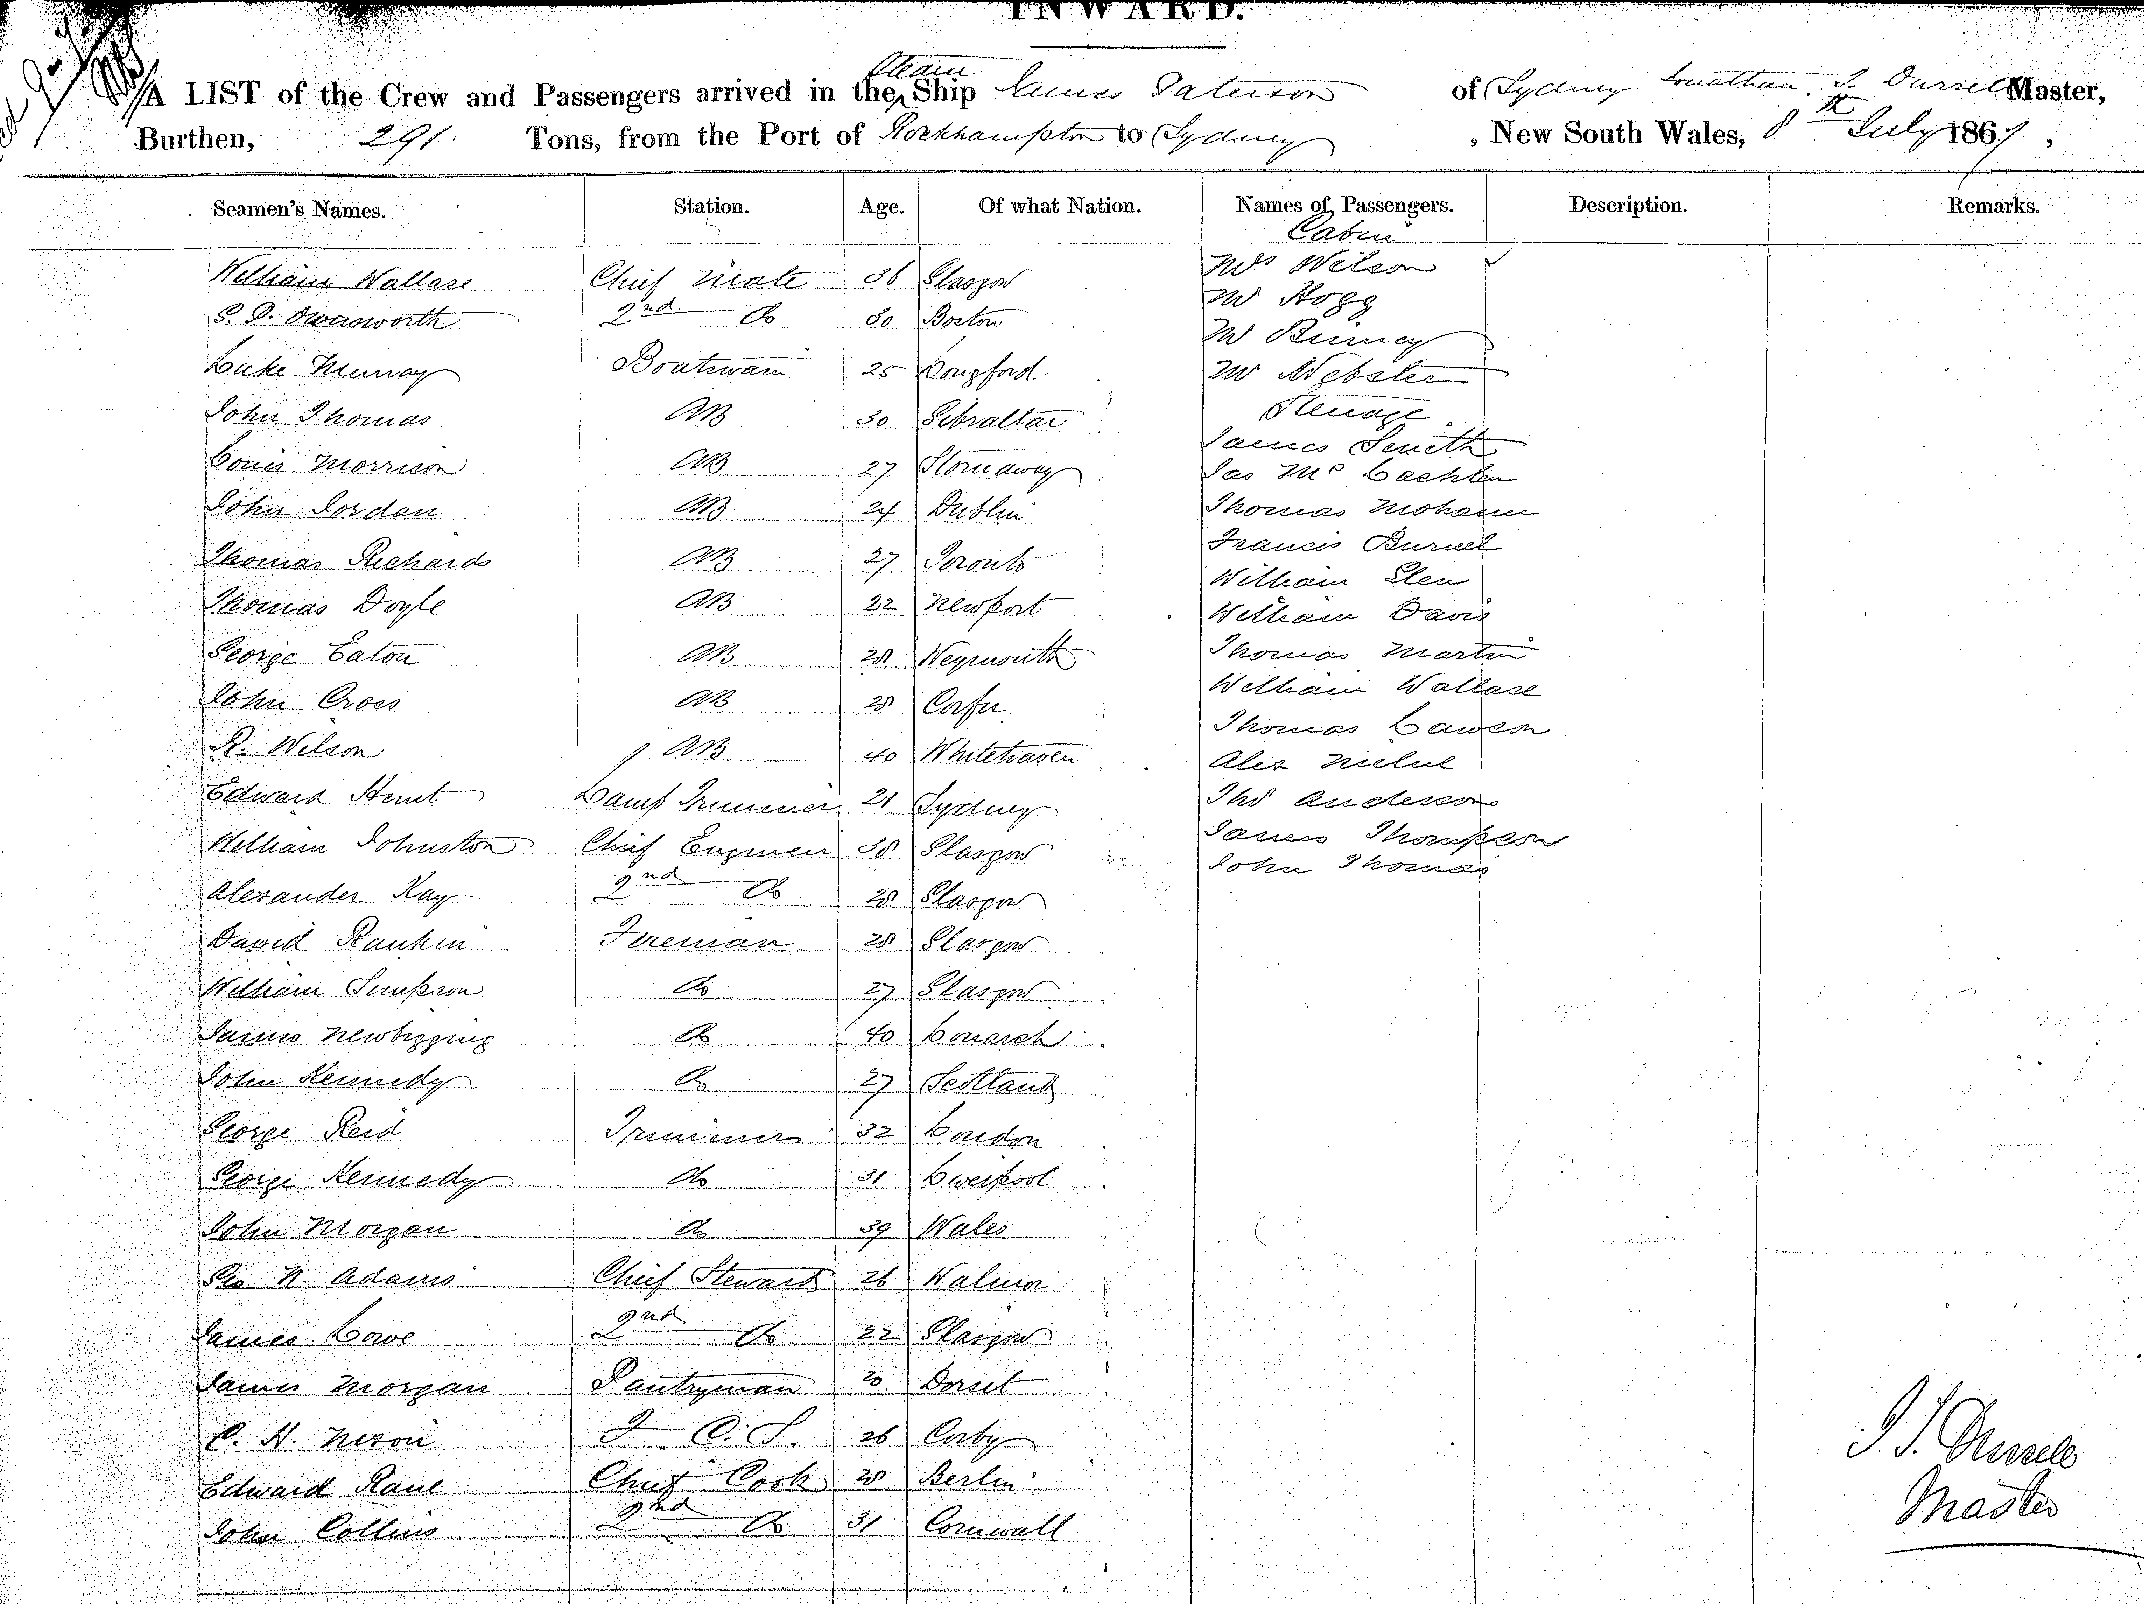 INWARD.
A LIST of the Crew and Passengers arrived in the Steam Ship James Paterson of Sydney Jonathan. S Master,
Burthen, 291 Tons, from the Port of Rockhampton to Sydney, New South Wales, 8th July 1867,
Seamen's Names. Station. Age. Of what Nation. Names of Passengers. Description. Remarks.
Cabin
William Wallase Chief Mate 36 Glasgow Wilson
2nd Do 30 Boston Mr Hogg
Mr Binney
Luke Murray Boatswain 25 Longford Mr Webster
John Thomas AB 30 Gibraltar Steerage
James Smith
Louis Morrison AB 27 Stornaway Jas Mc
John Jordan AB 24 Dublin Thomas
Francis Burnel
Thomas Richards AB 27 Toronto William Glen
Thomas Doyle AB 22 Newport William Davis
George Eaton AB 28 Weymouth Thomas Martin
John Cross AB 28 Corfu William Wallase
Thomas Lawson
R. Wilson AB 40 Whitehaven Alex
Edward Hunt Lamp Trimmer 21 Sydney Thos Anderson
William Johnston Chief Engineer 38 Glasgow James Thompson
John Thomas
Alexander Kay 2nd Do 28 Glasgow
David Rankin Fireman 28 Glasgow
William Simpson Do 27 Glasgow
James Newbigging Do 40 Lanark
John Kennedy Do 27 Scotland
George Reid Trimmer 32 London
George Kennedy Do 31 Liverpool
John Morgan Do 39 Wales
Geo W Adams Chief Steward 26 Walmer
James Lowe 2nd Do 22 Glasgow
James Morgan Pantryman 20 Dorset
C. H. Nixon C. S. 26 Corby
Edward Rane Chief Cook 28 Berlin
John Collins 2nd Do 31 Cornwall
Master